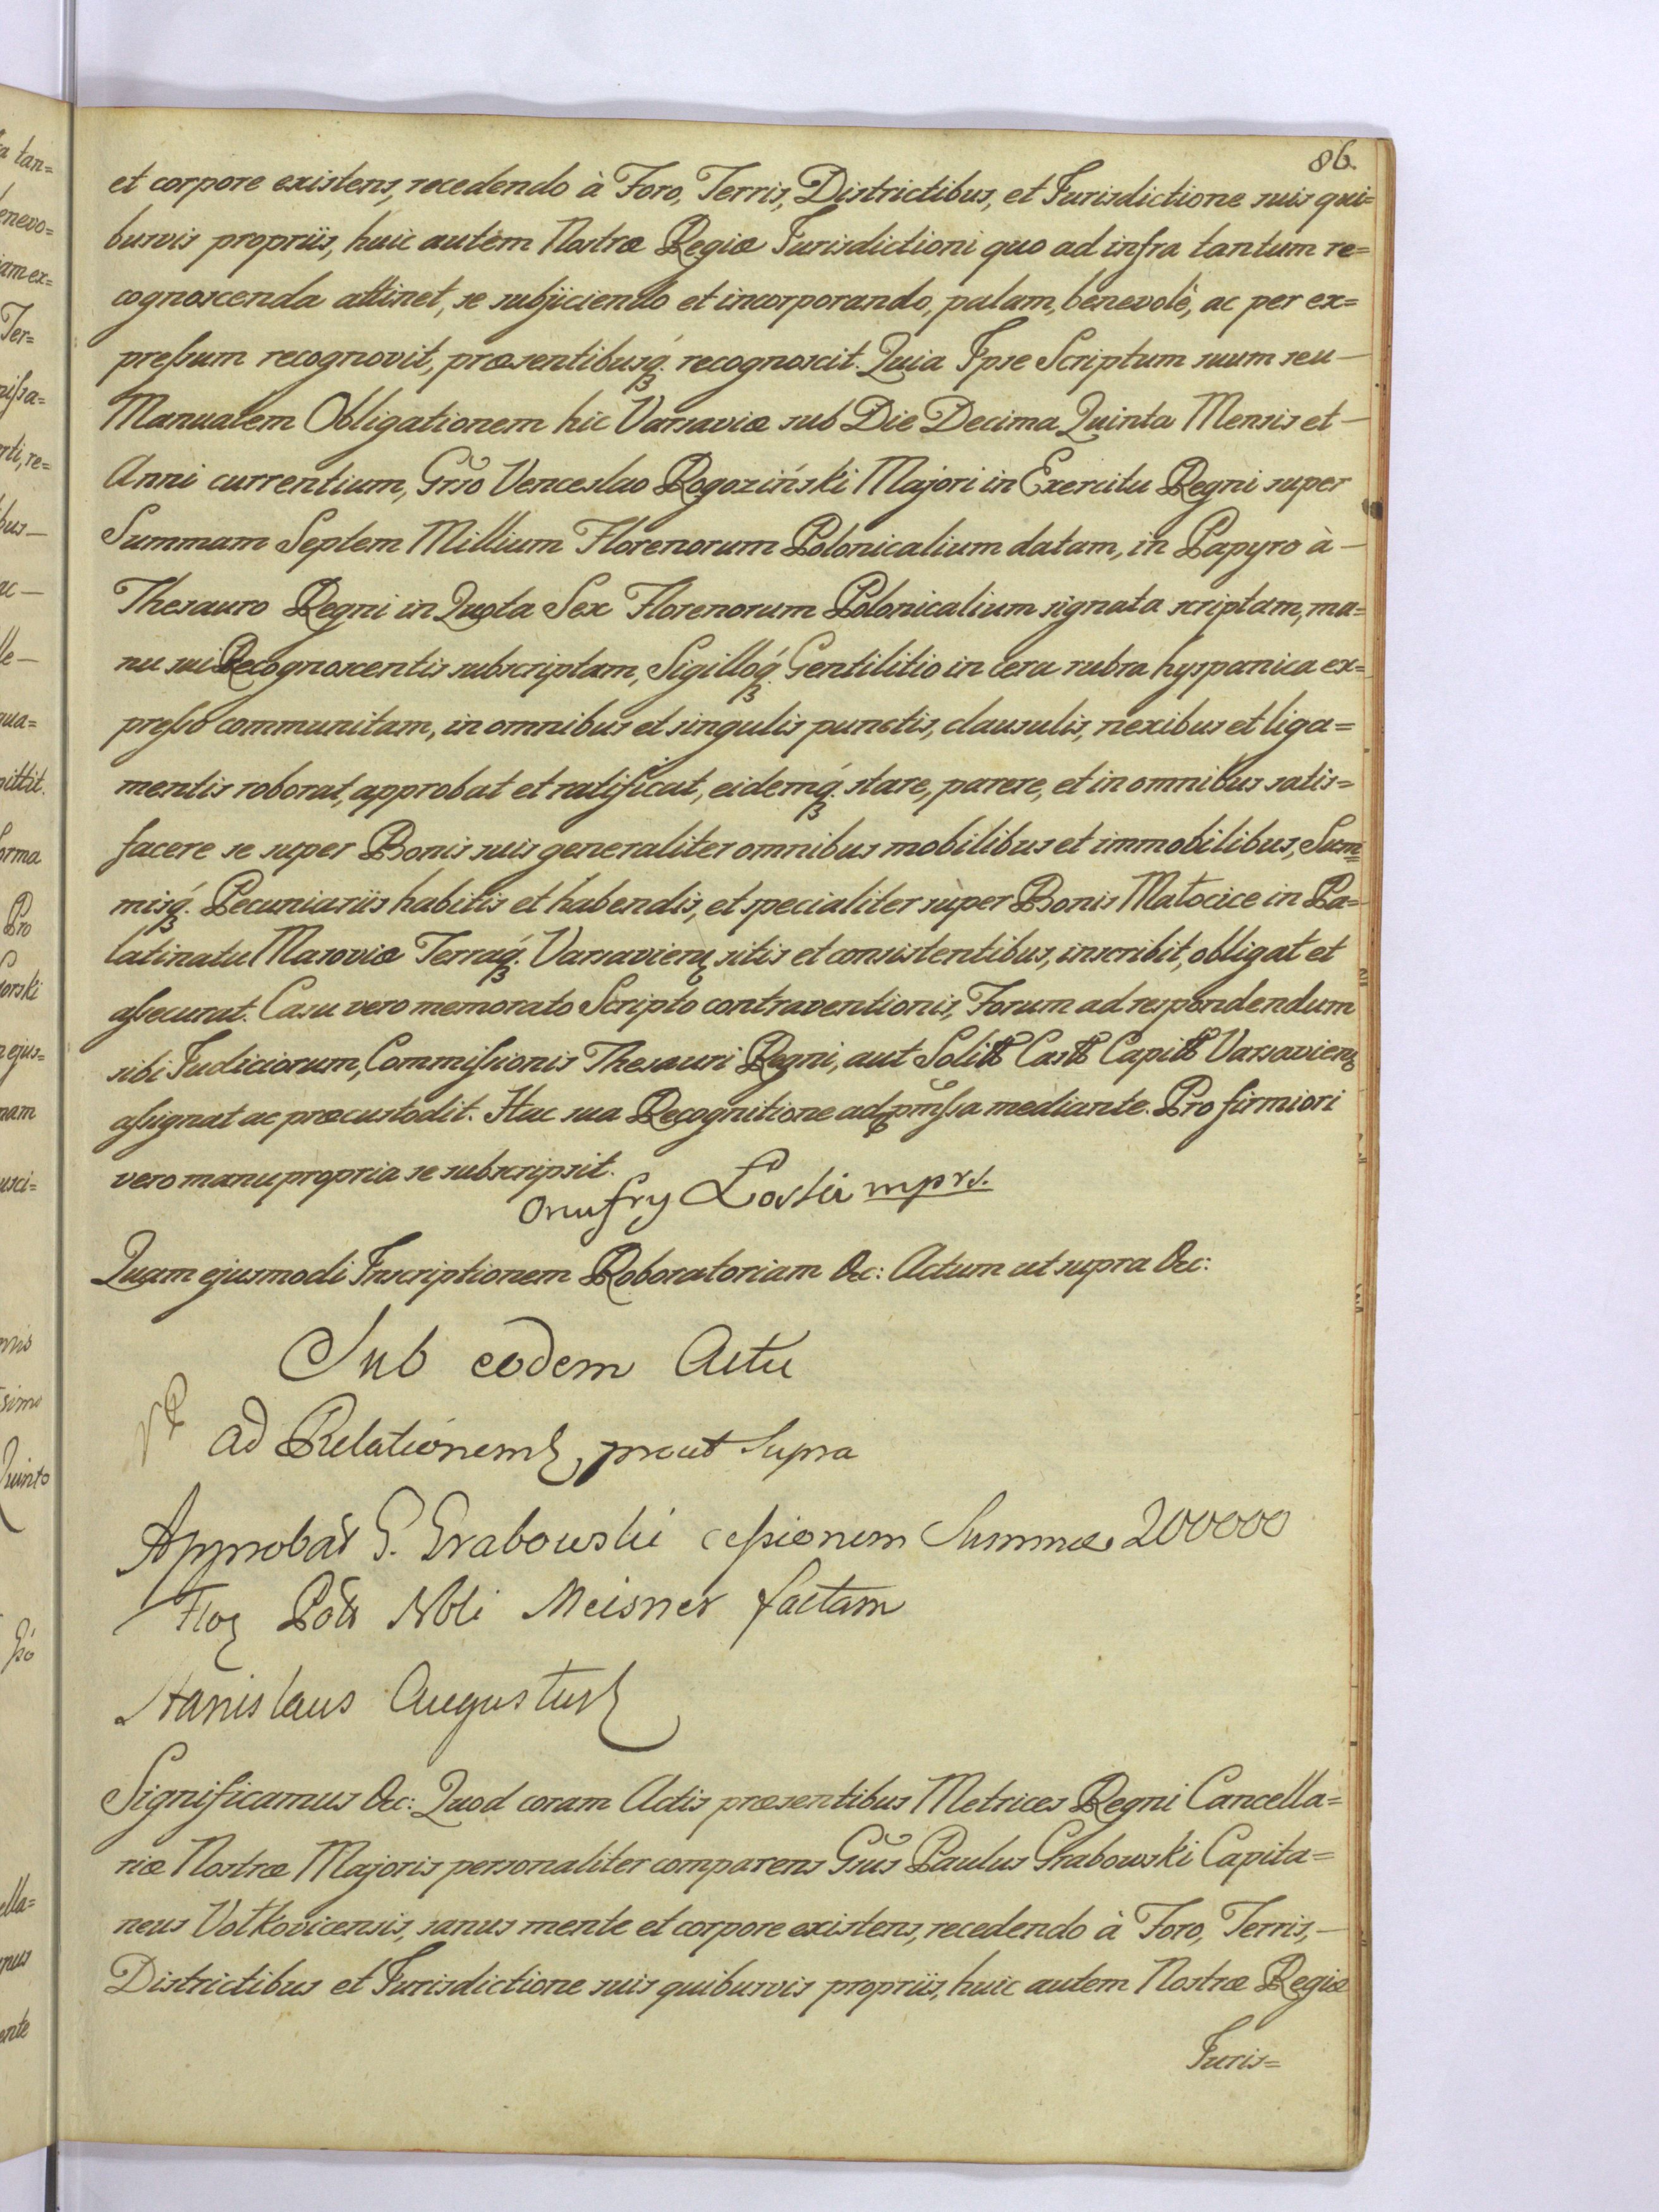 86.
et corpore existens, recedendo à Foro, Terris, Districtibus, et Jurisdictione suis qui=
busvis propriis, huic autem Nostræ Regiæ Jurisdictioni quo ad infra tantum re=
cognoscenda attinet, se subjiciendo et incorporando, palam, benevolè, ac per ex=
preſsum recognovit, præsentibusq́ꝫ. recognoscit. Quia Ipse Scriptum suum seu —
Manualem Obligationem hic Varsaviæ sub Die Decima Quinta Mensis et —
Anni currentium, Grso Venceslao Rogoziński Majori in Exercitu Regni super
Summam Septem Millium Florenorum Polonicalium datam, in Papyro à —
Thesauro Regni in Quota Sex Florenorum Polonicalium signata scriptam, ma=
nu sui Recognoscentis subscriptam, Sigilloq́ꝫ. Gentilitio in cera rubra hyspanica ex=
preſso communitam, in omnibus et singulis punctis, clausulis, nexibus et liga=
mentis roborat, approbat et ratificat, eidemq́ꝫ. stare, parere, et in omnibus satis=
facere se super Bonis suis generaliter omnibus mobilibus et immobilibus, Sum=
misq́ꝫ. Pecuniariis habitis et habendis, et specialiter super Bonis Matocice in Pa=
latinatu Masoviæ Terraq́ꝫ. Varsavien sitis et consistentibus, inscribit, obligat et
aſsecurat. Casu vero memorato Scripto contraventionis, Forum ad respondendum
sibi Judiciorum, Commiſsionis Thesauri Regni, aut Solit Cast Capit Varsavien
aſsignat ac præcustodit. Hac sua Recognitione ad mediante. Pro firmiori
vero manu propria se subscripsit.
Onufry Łoski mprs.
Quam ejusmodi Inscriptionem Roboratoriam &c: Actum ut supra &c:
Sub eodem Actu
ad Relationem, prout Supra
Approbat G. Grabowski ceſsionem Summæ 200000
Flor Pol Nbli Meisner factam
Stanislaus Augustus
Significamus &c: Quod coram Actis præsentibus Metrices Regni Cancella=
riæ Nostræ Majoris personaliter comparens Gsus Paulus Grabowski Capita=
neus Vołkovicensis, sanus mente et corpore existens, recedendo à Foro, Terris, —
Districtibus et Jurisdictione suis quibusvis propriis, huic autem Nostræ Regiæ
Juris=